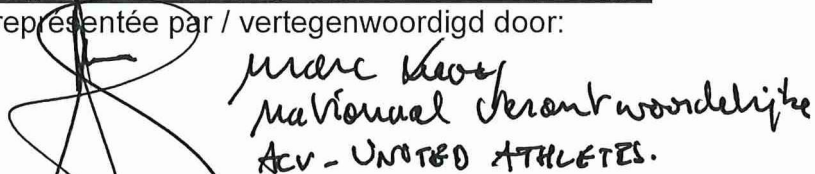 représentée par / vertegenwoordigd door:
Marc
Nationaal Verantwoordelijke
ACV - UNITED ATHLETES.